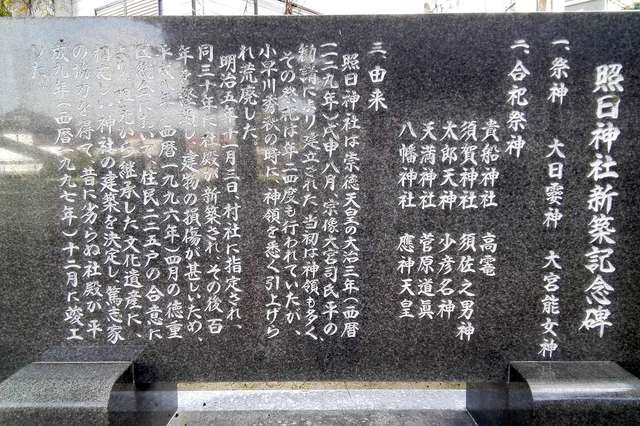 照日神社新築記念碑
一、祭神 大日孁神 大宮能女神
二、合祀祭神
貴船神社 高龗
須賀神社 須佐之男神
太郎天神 少彦名神
天満神社 菅原道眞
八幡神社 應神天皇
三、由来
照日神社は崇徳天皇の大治三年(西暦
一一二九年)戊申八月、宗像大宮司氏平の
勧請により建立された。当初は神領も多く、
その祭祀は年二四度も行われていたが、
小早川秀秋の時に、神領を悉く引上げら
れ荒廃した。
明治五年十一月三日、村社に指定され、
同三十年に社殿が新築され、その後百
年を経過し、建物の損傷が甚しいため、
平成八年(西暦一九九六年)四月の徳重
区総会において、住民二二五戸の合意に
より、祖先から継承した文化遺産に、
相応しい神社の建築を決定し、篤志家
の協力を得て、昔に劣らぬ社殿が、平
成九年(西暦一九九七年)十二月に竣工
した。